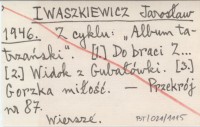 IWASZKIEWICZ Jarosław
1946. Z cyklu: „Album ta-
trzański". [1.] Do braci Z...
[2.] Widok z Gubałówki. [3.]
Gorzka miłość. — Przekrój
nr 87.
Wiersze.